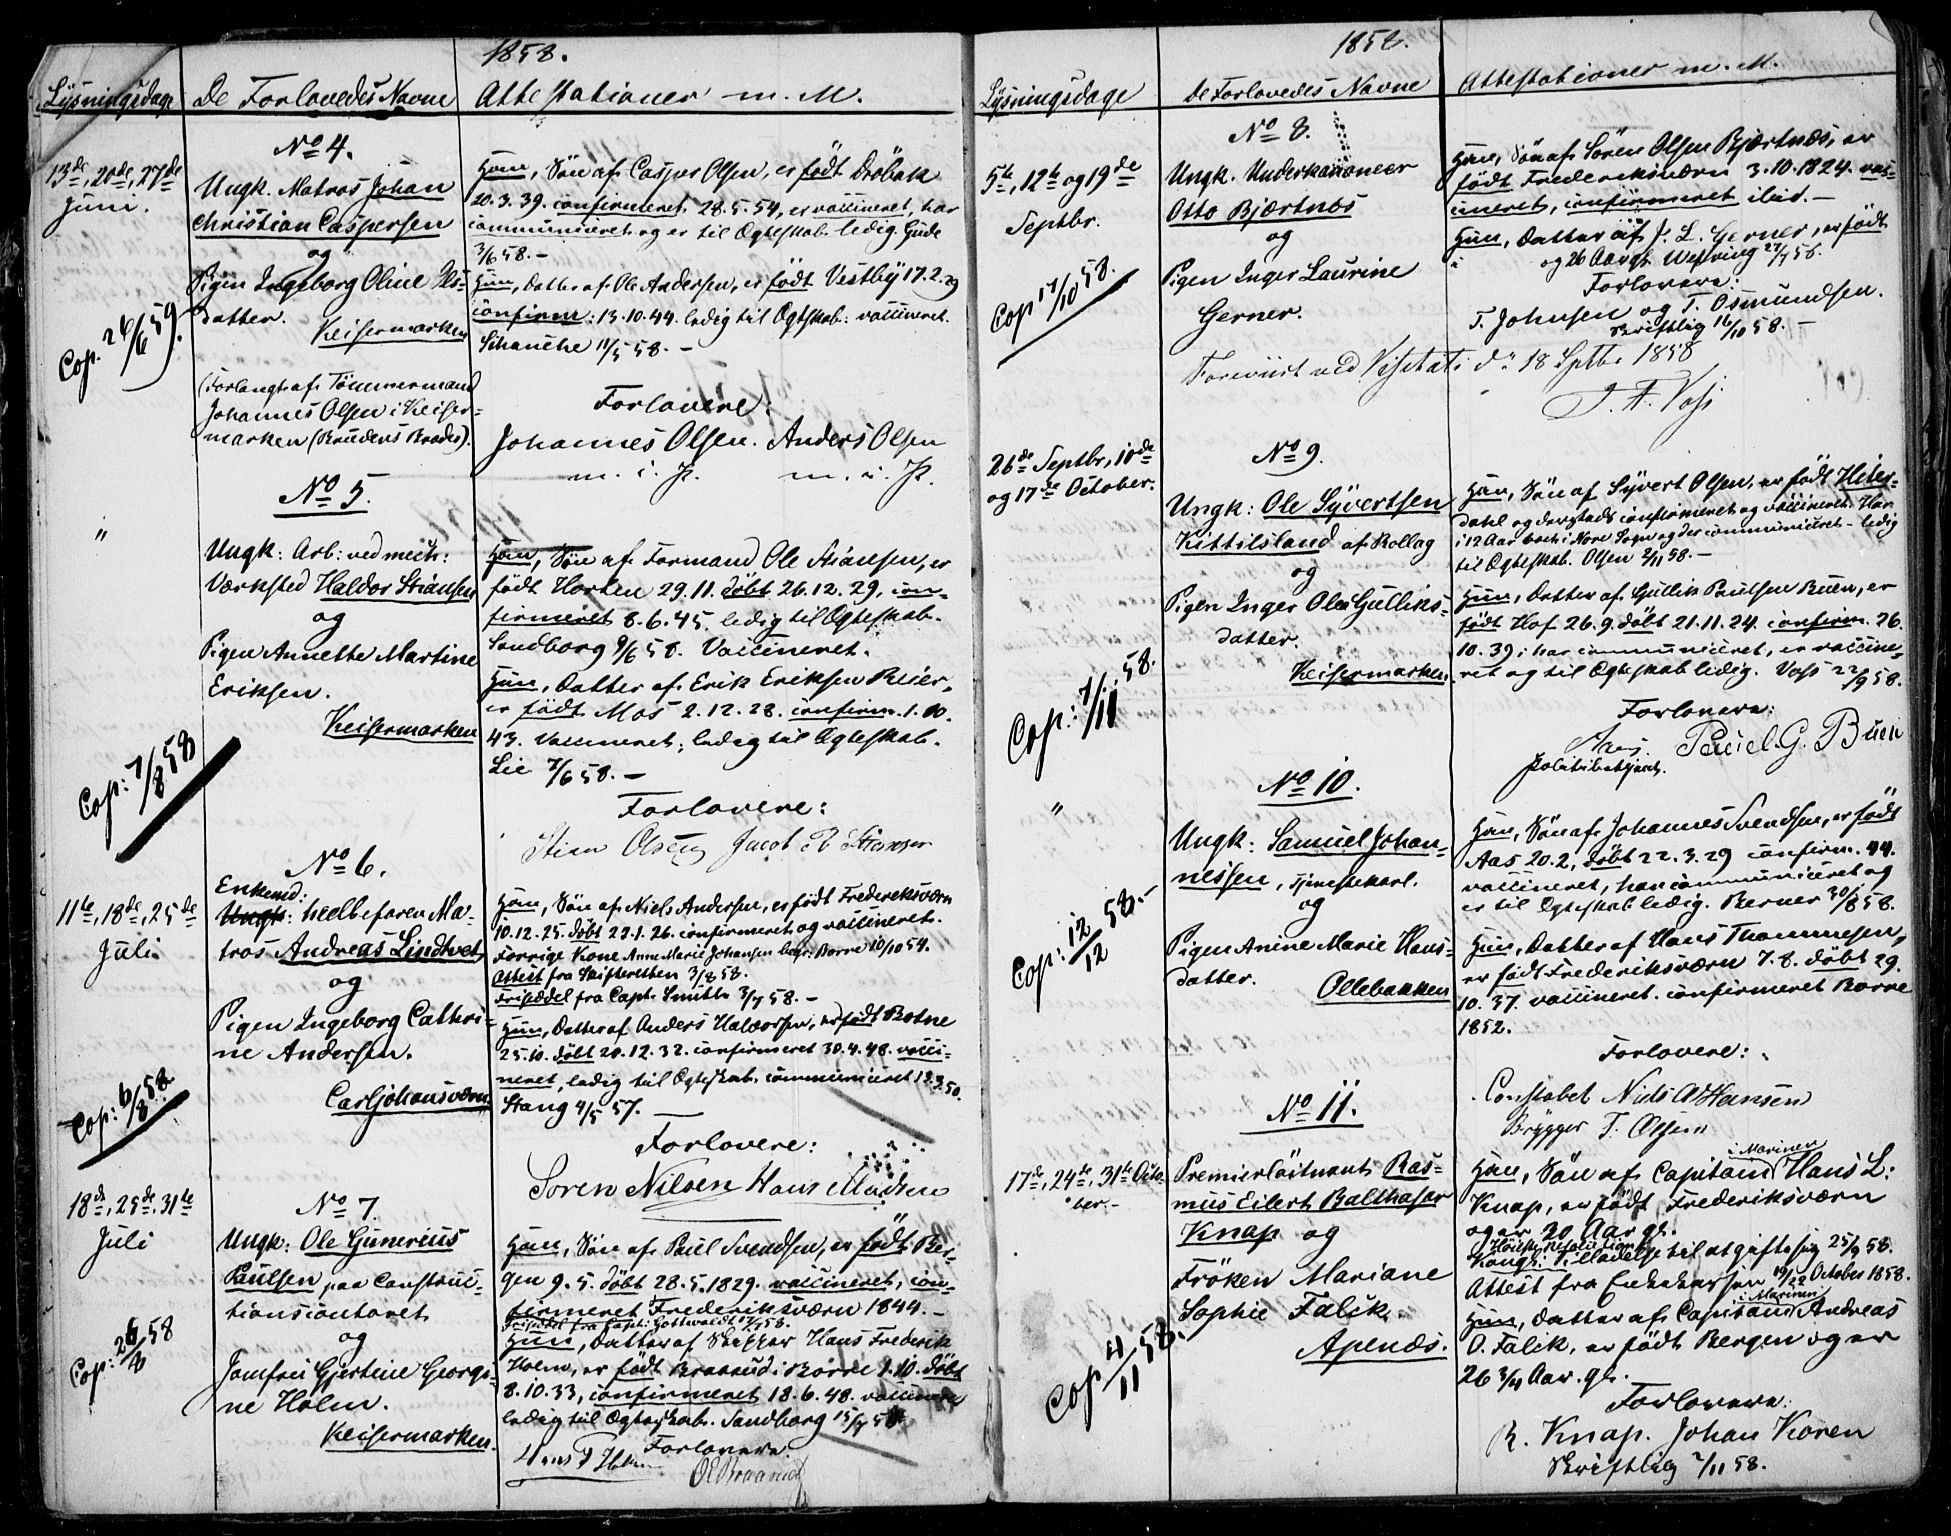 1858.
Lysningsdage De Forlovedes Navne Attestationer m. M.
No 4.
13de, 20de, 27de
Juni.
Ungk. Matros Johan
Christian Caspersen
og
Pigen Ingeborg Oline Ols-
datter.
Keisermarken
Cop. 26/6 59.
(Forlangt af Tömmermand
Johannes Olsen i Keiser-
marken (Brudens Broder).
Han, Sön af Casper Olsen, er født Dröbak
20.3.39. confirmeret 28.5.54, er vaccineret, har
communiceret og er til Ægteskab ledig Gude
3/6 58. –
Hun, Datter af Ole Andersen, er født Vestby 17.2.29
confirm: 13.10.44. ledig til Ægteskab: vaccineret.
Schanche 11/5 58. –
Forlovere:
Johannes Olsen. Anders Olsen
m. i. P. m. i. P.
No 5.
"
Ungk: Arb: ved mech:
Værksted Haldor Stiansen
og
Pigen Annette Martine
Eriksen.
Keisermarken
Cop: 7/8 58
Han, Sön af Formand Ole Stiansen, er
født Horten 29.11. döbt 26.12.29, con-
firmeret 8.6.45, ledig til Ægteskab.
Sandborg 9/6 58. Vaccineret.
Hun, Datter af Erik Eriksen Reier,
er født Mos 2.12.28. confirm. 1.10.
43. Vaccineret; ledig til Ægteskab.
Lie 7/6 58. –
Forlovere:
Stian Olsen Jacob Stiansen
No 6.
11te, 18de, 25de
Juli
Enkemd:
Ungk: heelbefaren Ma-
tros Andreas Lindtvet
og
Pigen Ingeborg Cathri-
ne Andersen.
Carljohansværn
Cop: 6/8 58.
Han, Sön af Niels Andersen, er født Frederiksværn
10.12.25. döbt 23.1.26. confirmeret og vaccineret.
Forrige Kone Anne Marie Johansen begr: Borre 10/10 54.
Attest fra Skifteretten 3/8 58.
Friseddel fra Capt. Smith 3/7 58. –
Hun, Datter af Anders Haldorsen, er født Botne
25.10. döbt 20.12.32. confirmeret 30.4.48. vacci-
neret, ledig til Ægteskab. communiceret 12.3.50.
Stang 4/5 57. –
Forlovere:
Soren Nilsen Hans Madsen
No 7.
18de, 25de, 31te
Juli
Ungk: Ole Gunerius
Paulsen, paa Construc-
tionscontoret
og
Jomfru Gjertine Georgi-
ne Holm.
Keisermarken.
Cop: 26/8 58
Han, Sön af Paul Svendsen, er født Ber-
gen 9.5. döbt 28.5.1829. vaccineret, con-
firmeret Frederiksværn 1844. –
Friseddel fra Capt: Gottwaldt 58.
Hun, Datter af Skipper Hans Frederik
Holm, er født Braarud i Borre 1.10. döbt
8.10.33, confirmeret 18.6.48. vaccineret
ledig til Ægteskab. Sandborg 15/7 58
Forlovere
Hans F Holm
OEBraarud
1858.
Lysningsdage De Forlovedes Navne Attestationer m. M.
No 8.
5te, 12te og 19de
Septbr.
Ungk. Underkanoneer
Otto Bjærtnæs
og
Pigen Inger Laurine
Gerner.
Cop 17/10 58.
Han, Sön af Sören Olsen Bjærtnæs, er
født Frederiksværn 3.10.1824. vac-
cineret, confirmeret ibid. –
Hun, Datter af J. L. Gerner, er født
i og 26 Aar gl. Wefring 27/7 58.
Forlovere:
T. Johnsen og T. Osmundsen.
Skriftlig 16/10 58. –
Foreviist ved Visitats d. 18 Septbr 1858
J. A. Voss
No 9.
26de Septbr, 10de
og 17de October.
Ungk: Ole Syvertsen
Kittilsland af Rollag
og
Pigen Inger Olea Gulliks-
datter.
Keisermarken.
Cop: 7/11 58.
Han, Sön af Syvert Olsen, er født Hiter-
dahl og dersteds confirmeret og vaccineret. Har
i 12 Aar boet i Nore Sogn og der communiceret – ledig
til Ægteskab. Olsen 2/11 58. –
Hun, Datter af Gullik Paulsen Buen, er
født Hof 26.9. döbt 21.11.24. confirm. 26.
10.39; har communiceret, er vaccine-
ret og til Ægteskab ledig. Voss 22/9 58.
Forlovere:
Aas. Pauel G. Buen
Politibetjent.
No 10.
"
Ungk: Samuel Johan-
nessen, Tjenestekarl.
og
Pigen Anine Marie Hans-
datter.
Ollebakken
Cop: 12/12 58. –
Han, Sön af Johannes Svendsen, er født
Aas 20.2, döbt 22.3.29 confirm. 44.
vaccineret, har communiceret og
er til Ægteskab ledig. Berner 30/8 58.
Hun, Datter af Hans Thommesen,
er født Frederiksværn 7.8. döbt 29.
10.37. vaccineret. confirmeret Borre
1852.
Forlovere:
Constabel Niels A Hansen
Brygger T. Olsen
No 11.
17de, 24de, 31te Octo-
ber. –
Premierlöitnant Ras-
mus Eilert Balthasar
Knap og
Fröken Mariane
Sophie Falck
Apenæs.
Cop 11/11 58.
i Marinen
Han, Sön af Capitain Hans L.
Knap, er født Frederiksværn
og er 30 Aar gl.
Kongl. Tilladelse til at gifte sig 25/9 58.
Attest fra Enkekassen 19/22 October 1858.
i Marinen
Hun, Datter af Capitain Andreas
O. Falck, er født Bergen og er
26 3/4 Aar gl.
Forlovere:
R. Knap. Johan Koren
Skriftlig 7/11 58.